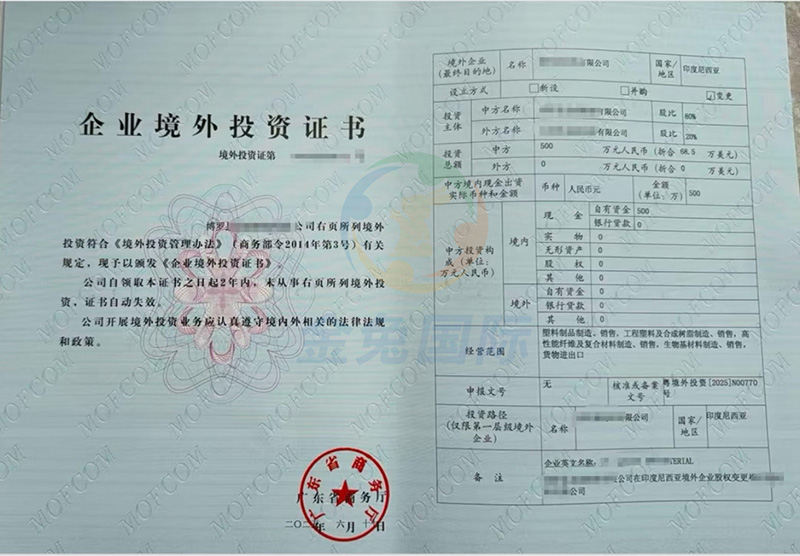 企业境外投资证书
境外投资证第
号
博罗
公司右页所列境外
投资符合《境外投资管理办法》(商务部令2014年第3号)有关
规定,现予以颁发《企业境外投资证书》。
公司自领取本证书之日起2年内,未从事右页所列境外投
资,证书自动失效。
公司开展境外投资业务应认真遵守境内外相关的法律法规
和政策。
广东省商务厅
广东省商务厅
六月
日
境外企业(最终目的地) 名称 有限公司 国家/地区 印度尼西亚
设立方式 □新设 □并购 ☑变更
投资主体 中方名称 有限公司 股比 80%
外方名称 有限公司 股比 20%
投资总额 中方 500 万元人民币(折合 68.5 万美元)
外方 0 万元人民币(折合 0 万美元)
中方境内现金出资实际币种和金额 币种 人民币元 金额(单位:万) 500
中方投资构成(单位:万元人民币) 境内 现金 自有资金 500
银行贷款 0
实物 0
无形资产 0
股权 0
其他 0
境外 自有资金 0
银行贷款 0
其他 0
经营范围 塑料制品制造、销售,工程塑料及合成树脂制造、销售,高
性能纤维及复合材料制造、销售,生物基材料制造、销售,
货物进出口
申报文号 无 核准或备案文号 粤境外投资[2025]N00770
号
投资路径(仅限第一层级境外企业) 名称 有限公司 国家/地区 印度尼西亚
备注 企业英文名称: ERIAL
公司在印度尼西亚境外企业股权变更
公司
金兔国际
MOFCOM